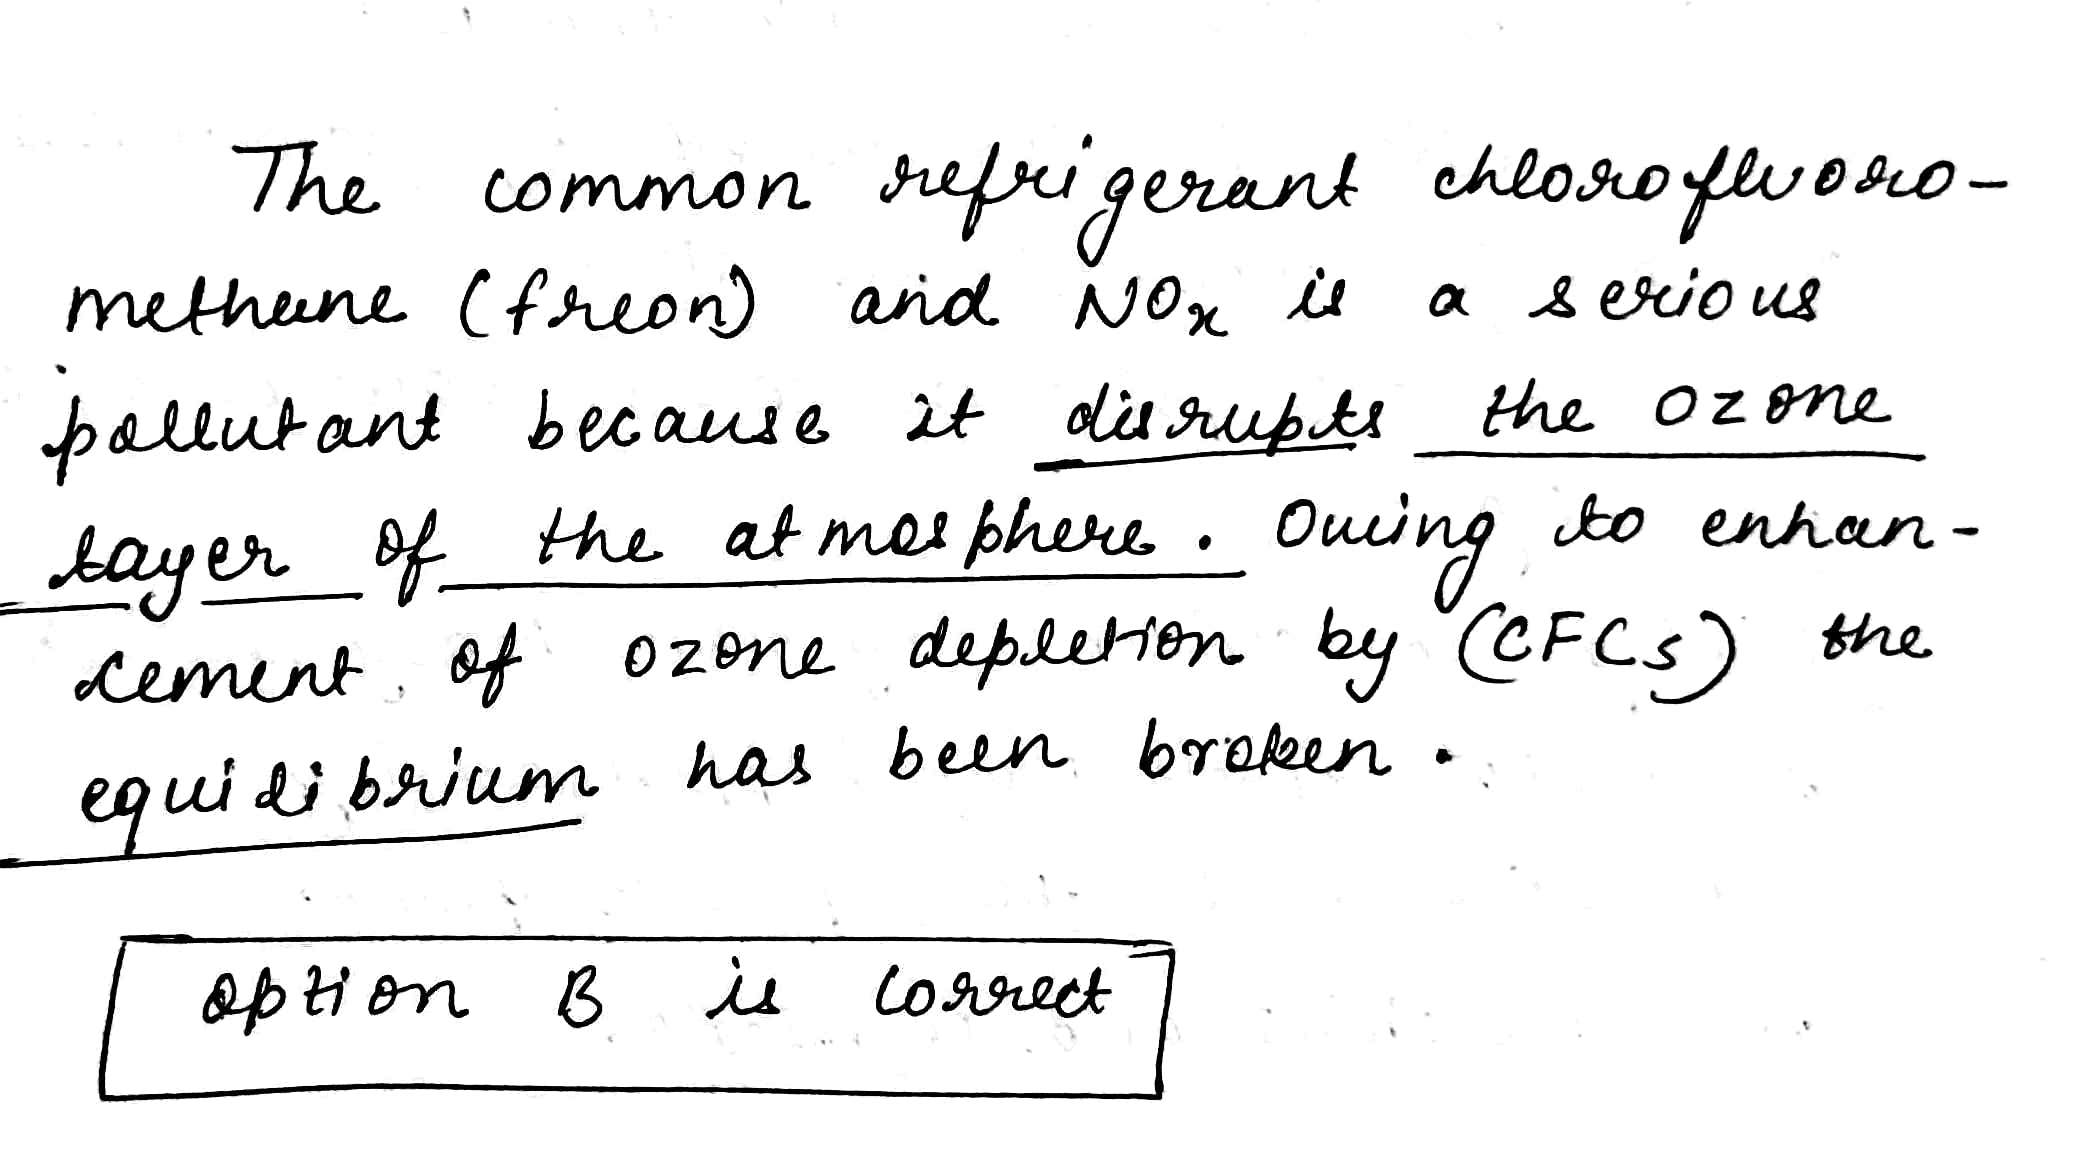 The common refrigerant chlorofluoro-
methane (freon) and NOx is a serious
pollutant because it disrupts the ozone
layer of the atmosphere. Owing to enhan-
cement of ozone depletion by (CFCs) the
equilibrium has been broken.
option B is correct